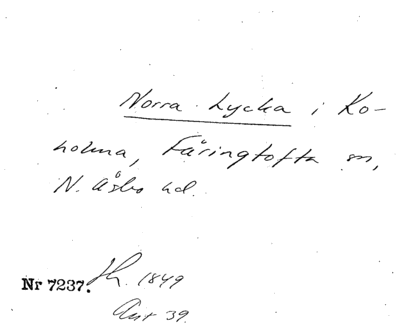 Norra Lycka i Ko-
holma, Färingtofta sn,
N. Åsbo hd.
Nr 7237. Jh. 1849
Ant 39.